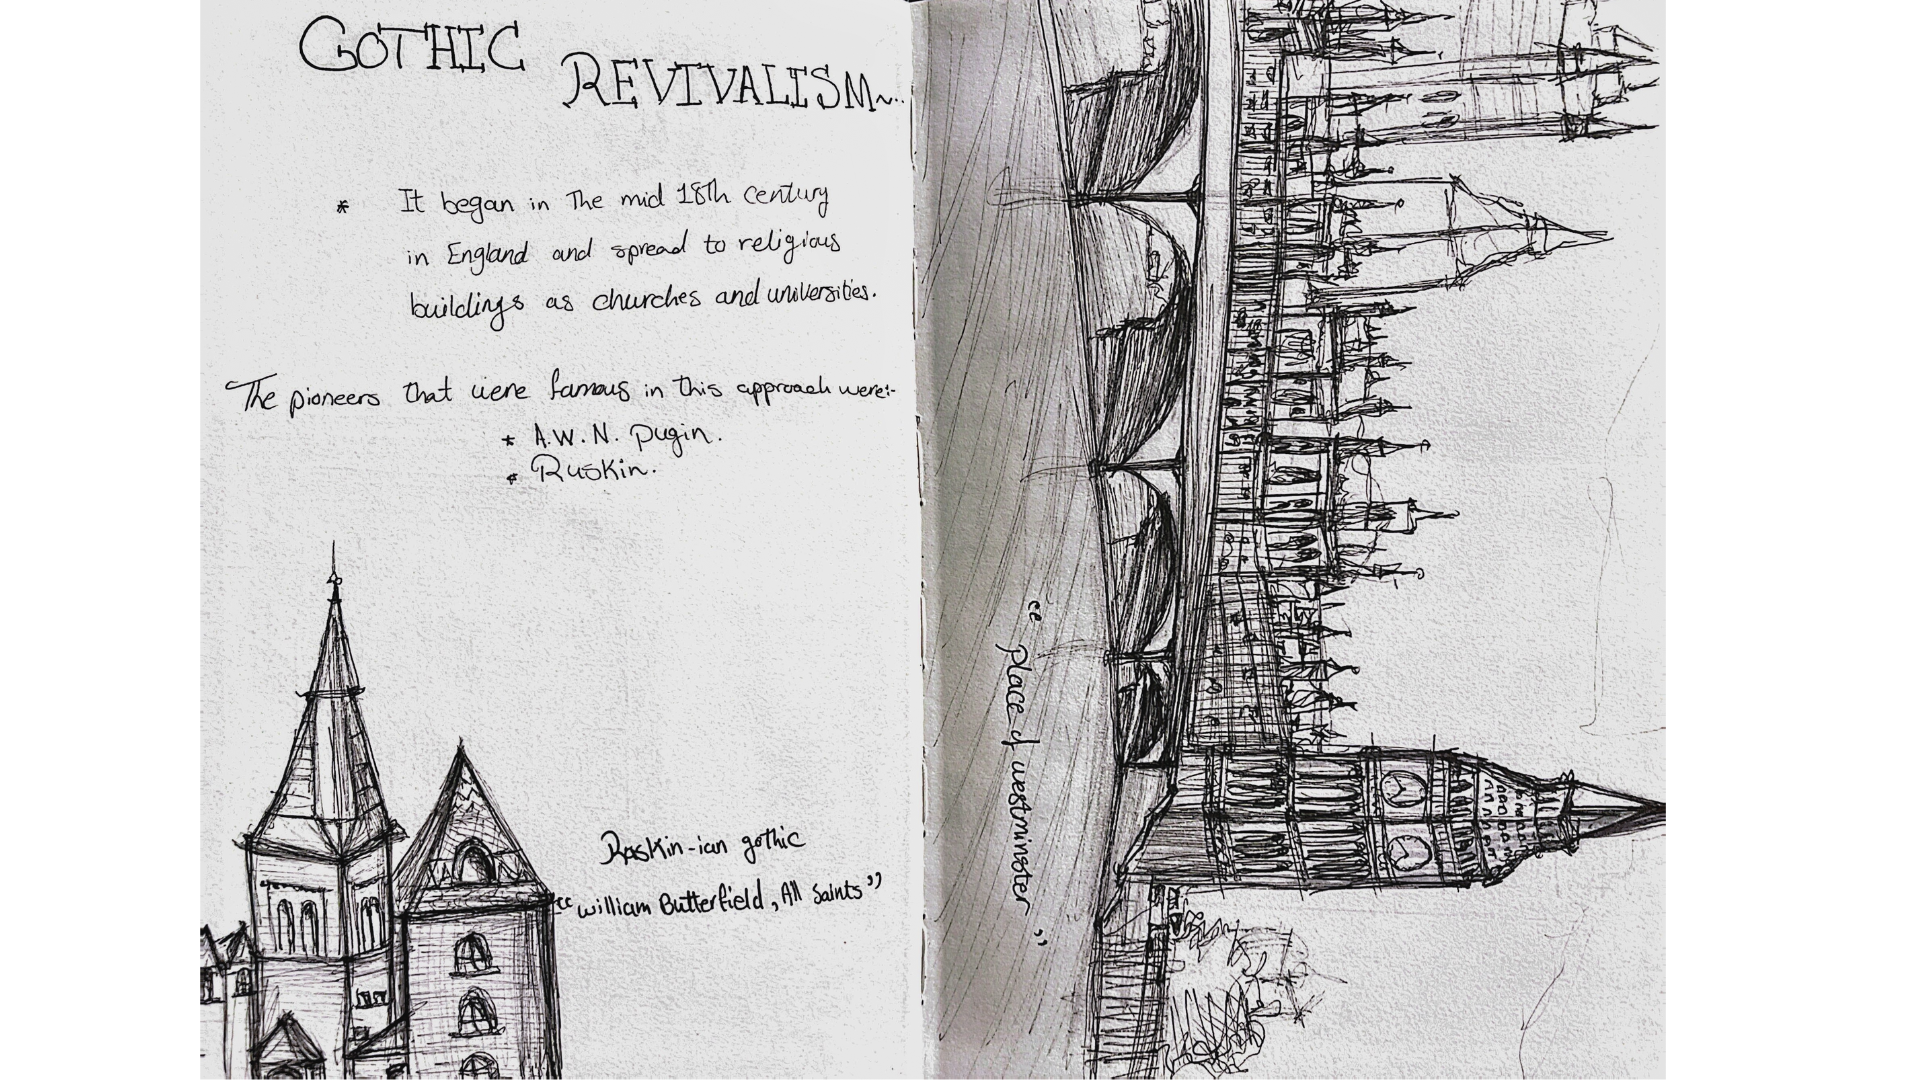 GOTHIC
REVIVALISM~..
* It began in The mid 18th century
in England and spread to religious
buildings as churches and universities.
The pioneers that were famous in this approach were:-
* A.W.N. pugin.
* Ruskin.
Raskin-ian gothic
"william Butterfield, All Saints"
"Place of westminster"